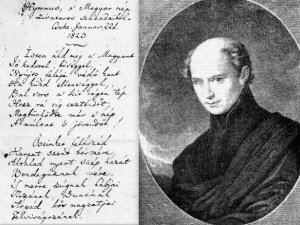 Hymnus, a' Magyar nép
zivataros századaiból.
Cseke, Januar. 22d.
1823.
Isten áldd meg a' Magyart
Jó kedvvel, bőséggel,
Nyújts feléje védő kart
Ha küzd ellenséggel;
Bal sors a' kit régen tép,
Hozz rá víg esztendőt,
Megbűnhődte már e' nép
A' múltat 's jövendőt.
Őseinket felhozád
Kárpát szent bérczére,
Általad nyert szép hazát
Bendegúznak vére.
'S merre zúgnak habjai
Tiszának, Dunának
Árpád hős magzatjai
Felvirágozának.